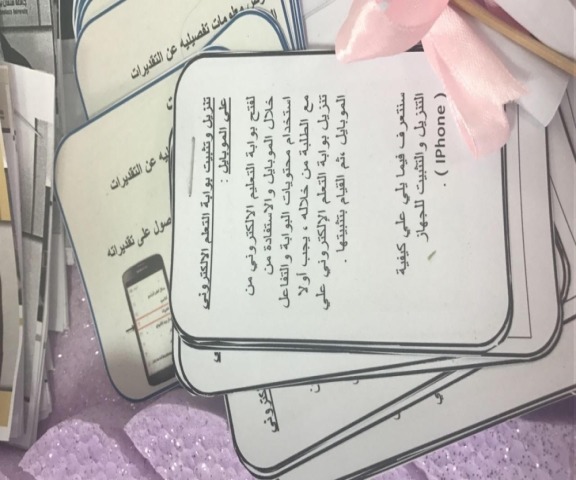 تنزيل وتثبيت بوابة التعلم الالكتروني
على الموبايل :
لفتح بوابة التعليم الالكتروني من
خلال الموبايل والاستفادة من
استخدام محتويات البوابة والتفاعل
مع الطلبة من خلاله ، يجب أولا
تنزيل بوابة التعلم الإلكتروني على
الموبايل ،ثم القيام بتثبيتها .
سنتعرف فيما يلي على كيفية
التنزيل والتثبيت للجهاز
( IPhone ) .
ومات تفصيليه عن التقديرات
يه عن التقديرات
صول على تقديراته